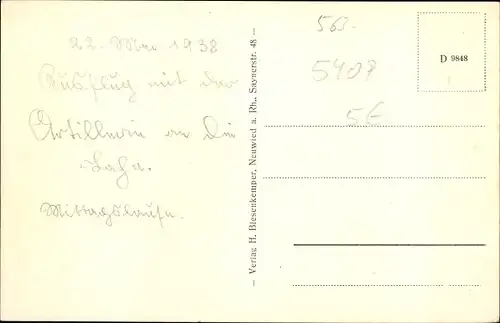 22. Mai 1938
Ausflug mit der
Artillerie an die
Lahn.
Mittagspause.
— Verlag H. Biesenkemper, Neuwied a. Rh., Saynerstr. 48 —
563.
5408
5€
D 9848